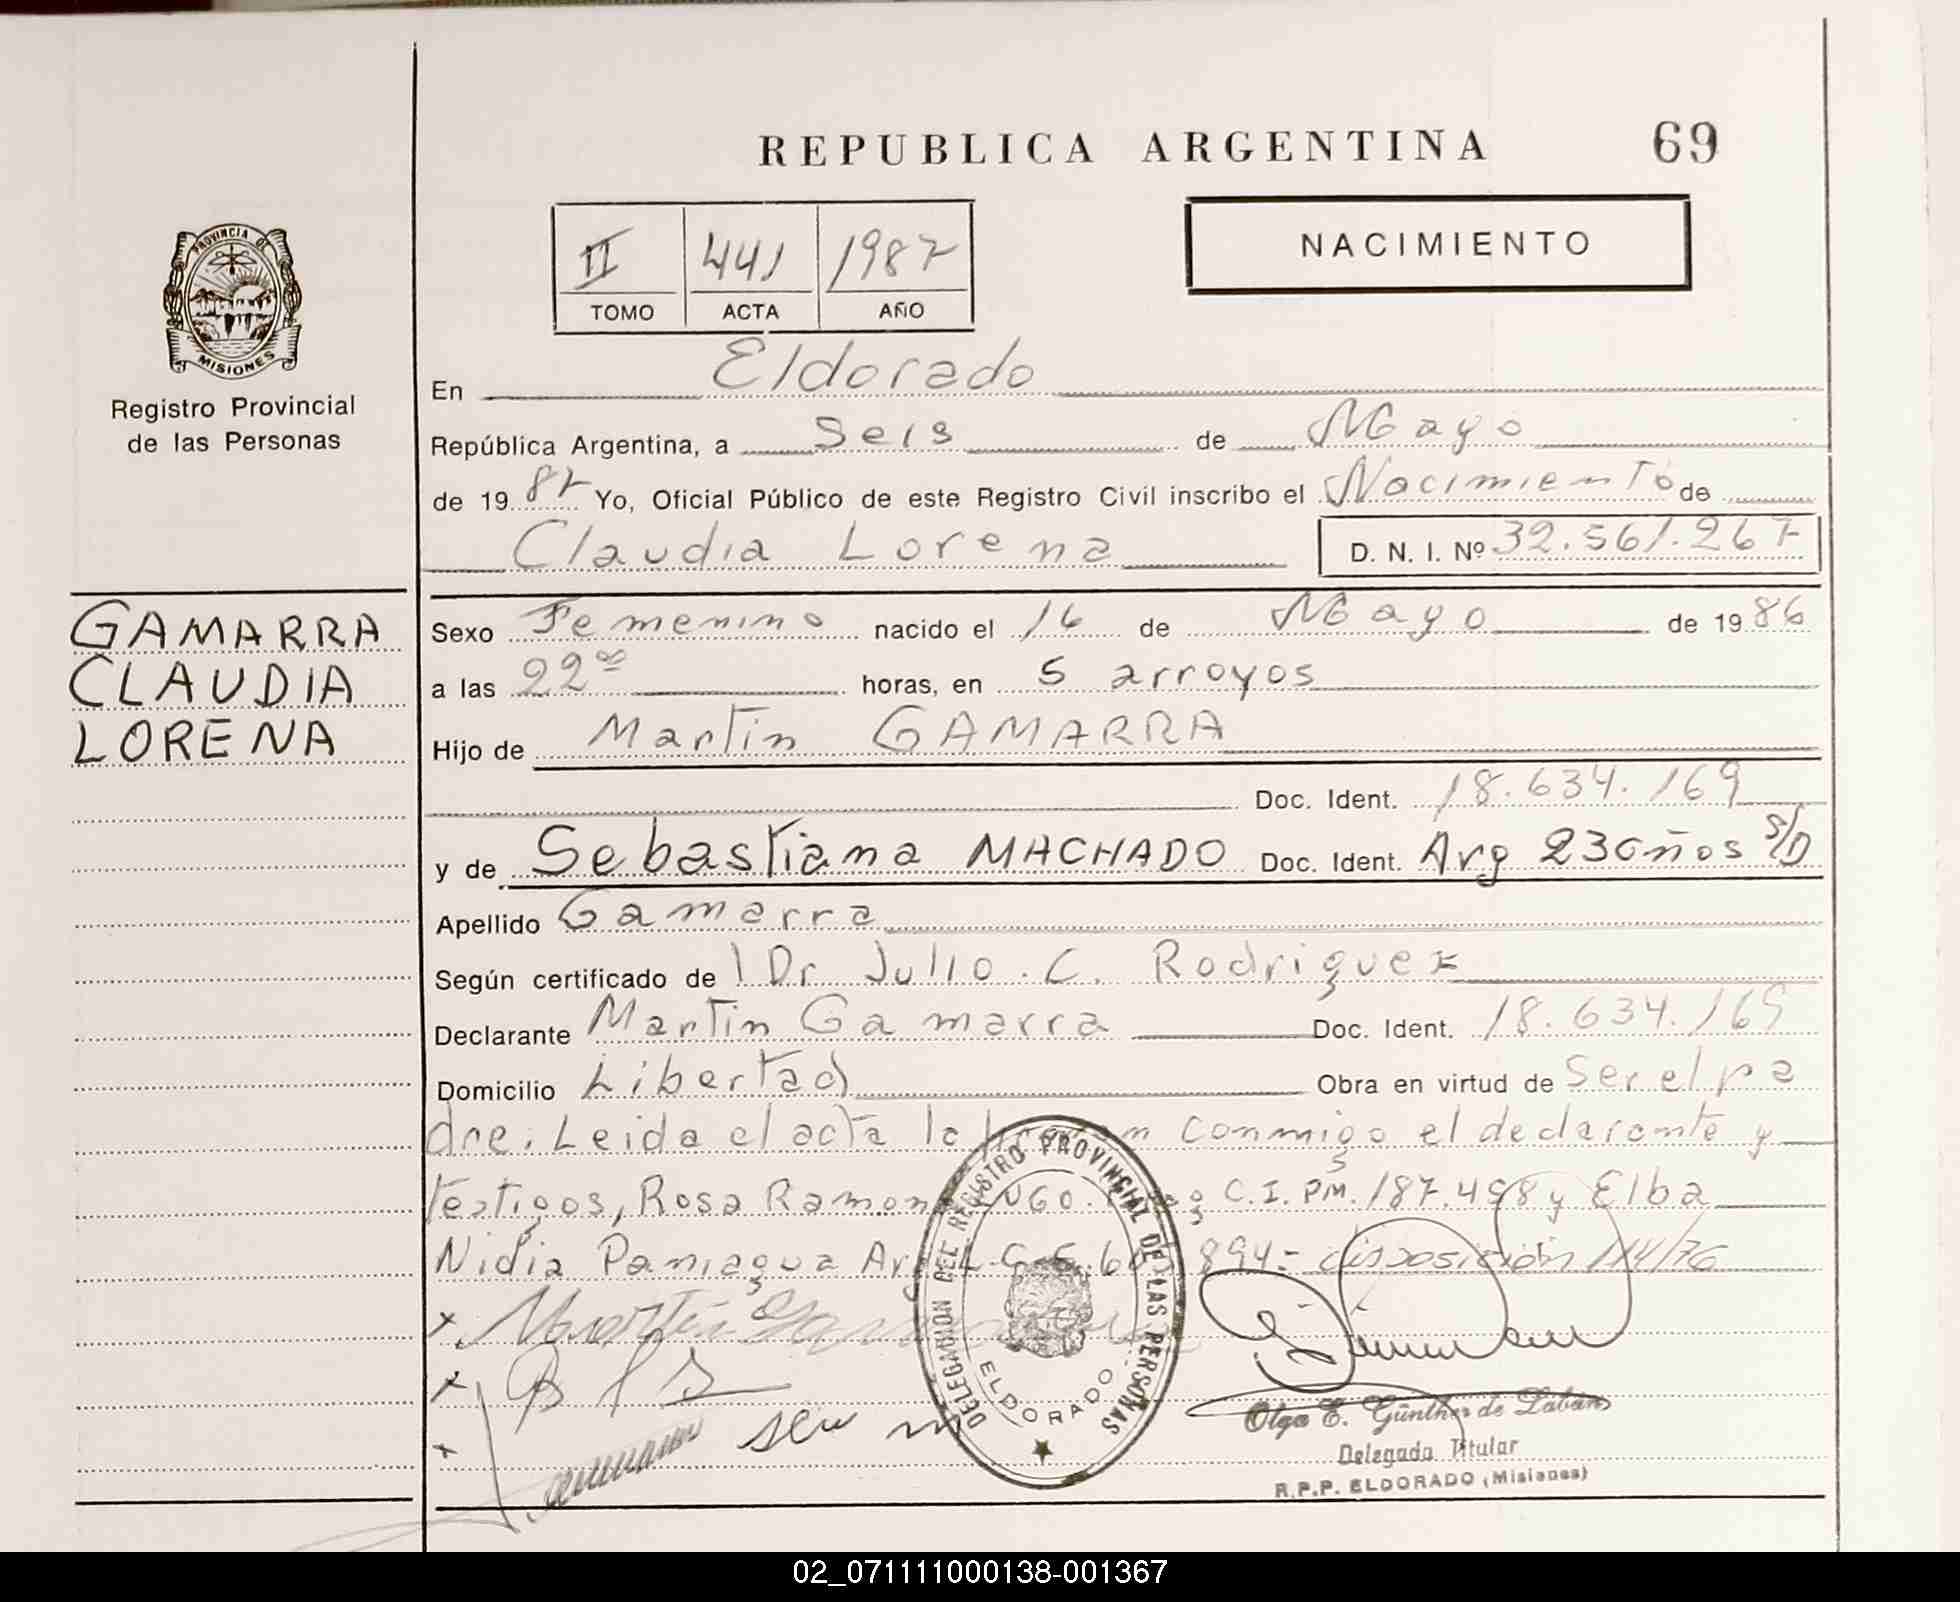 REPUBLICA ARGENTINA
69
PROVINCIA DE
MISIONES
Registro Provincial
de las Personas
II 441 1987
TOMO ACTA AÑO
NACIMIENTO
En Eldorado
República Argentina, a Seis de Mayo
de 1987 Yo, Oficial Público de este Registro Civil inscribo el Nacimiento de
Claudia Lorena D. N. I. Nº 32.561.267
GAMARRA
CLAUDIA
LORENA
Sexo Femenino nacido el 16 de Mayo de 1986
a las 22 00 horas, en 5 arroyos
Hijo de Martin GAMARRA
Doc. Ident. 18.634.169
y de Sebastiana MACHADO Doc. Ident. Arg 23 años S/D
Apellido Gamarra
Según certificado de Dr Julio. C. Rodriguez
Declarante Martin Gamarra Doc. Ident. 18.634.169
Domicilio Libertad Obra en virtud de Ser el pa
dre. Leida el acta la conmigo el declarante y
testigos, Rosa Ramona C.I. PM. 187.498 y Elba
Nidia Paniagua Arg L.C. 894.- disposición 114/76
Martin
DELEGACION DEL REGISTRO PROVINCIAL DE LAS PERSONAS
ELDORADO
Olga E. Günther de Labán
Delegada Titular
R.P.P. ELDORADO (Misiones)
02_071111000138-001367